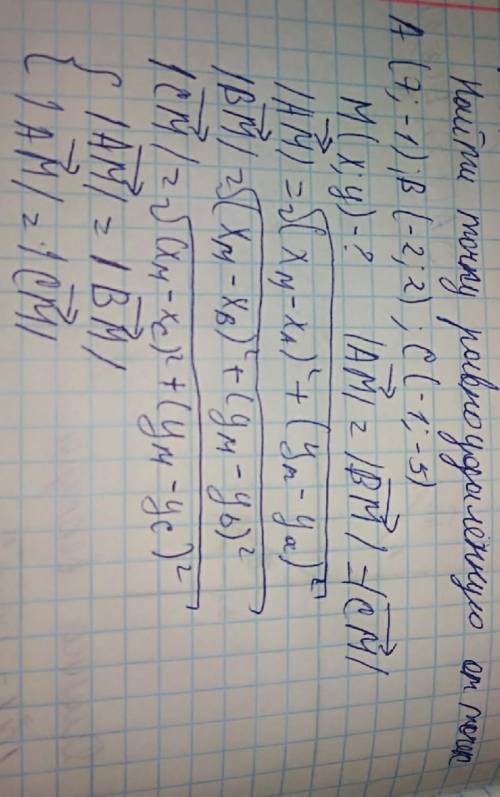 Найти точку равноудалённую от точек
A (7; -1); B (-2; 2); C (-1; -5)
M (x; y) - ? |AM| = |BM| = |CM|
|AM| = √(xM - xA)² + (yM - ya)²
|BM| = √(xM - xB)² + (yM - yb)²
|CM| = √(xM - xc)² + (yM - yc)²
{ |AM| = |BM|
|AM| = |CM|